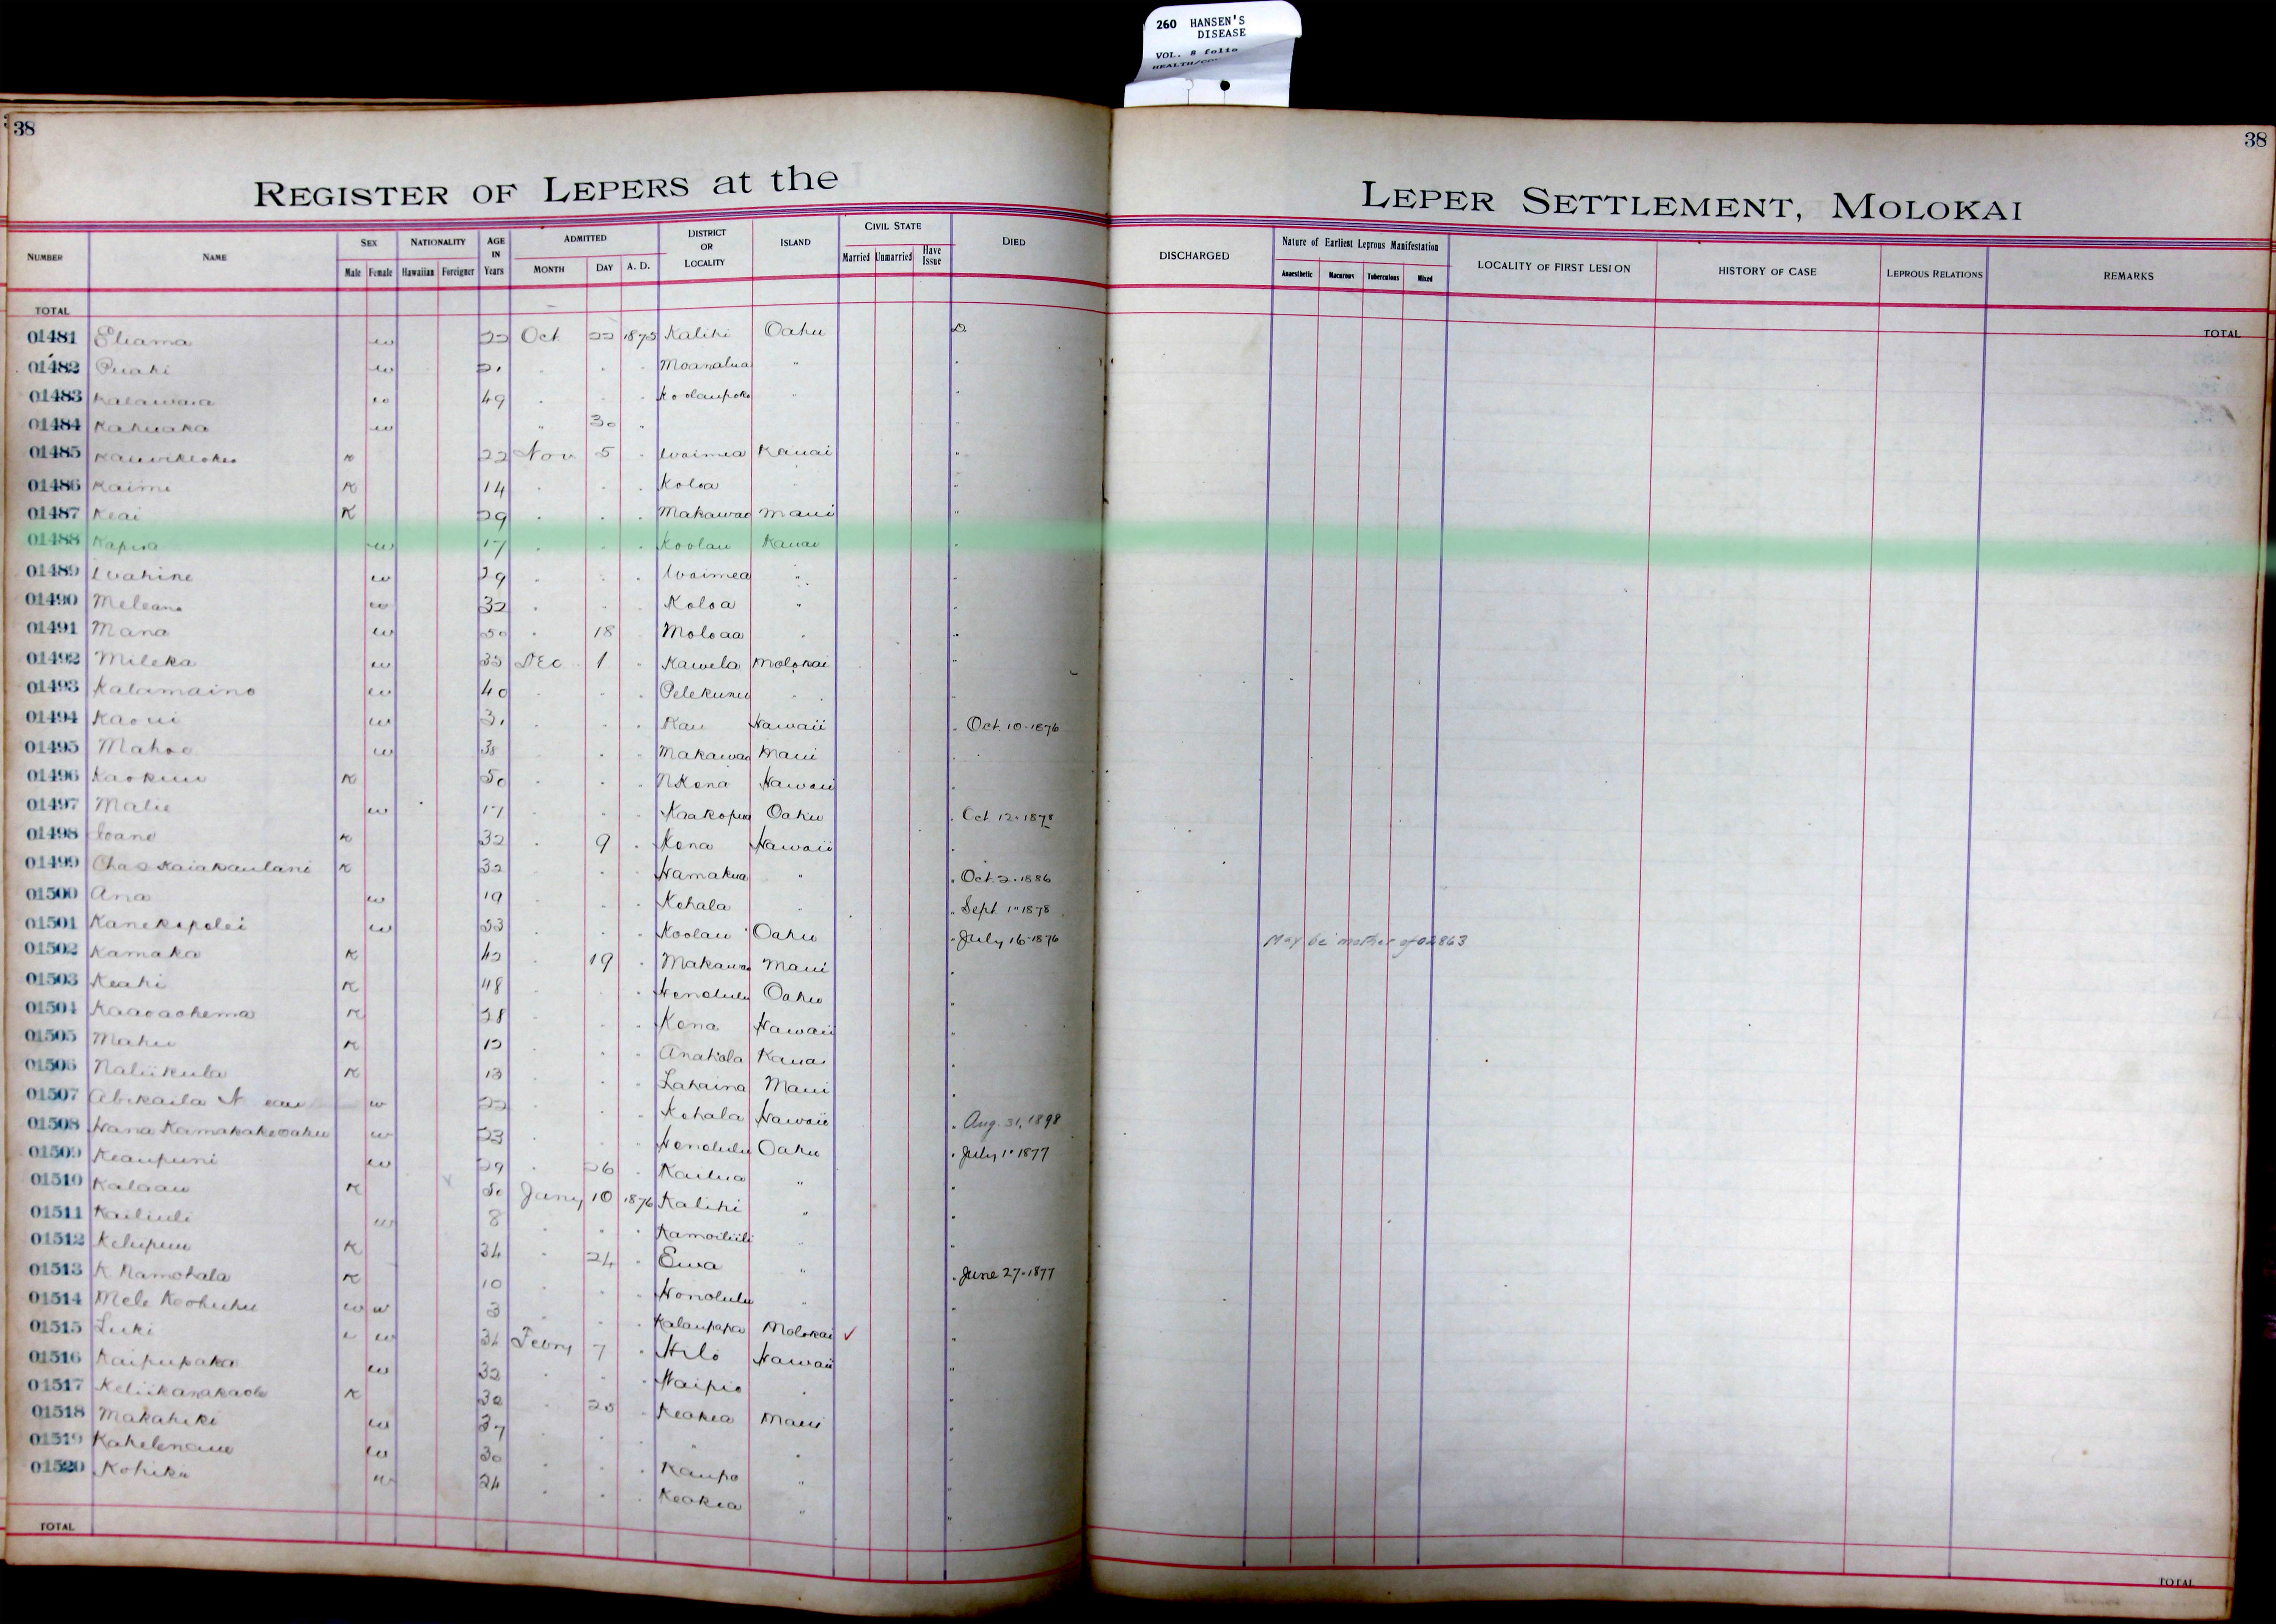 260 HANSEN'S
DISEASE
VOL. 8 folio
38
38
REGISTER OF LEPERS at the LEPER SETTLEMENT, MOLOKAI
NUMBER NAME SEX Male Female NATIONALITY Hawaiian Foreigner AGE IN Years ADMITTED MONTH DAY A. D. DISTRICT OR LOCALITY ISLAND CIVIL STATE Married Unmarried Have Issue DIED DISCHARGED Nature of Earliest Leprous Manifestation Anaesthetic Macarous Tuberculous Mixed LOCALITY OF FIRST LESION HISTORY OF CASE LEPROUS RELATIONS REMARKS
TOTAL TOTAL
01481 Eliama w 22 Oct 22 1875 Kalihi Oahu D
01482 Puahi w 21 . . . Moanalua "
01483 Kalawaia w 49 . . . Koolaupoko "
01484 Kahuaka w " 30 "
01485 k 22 Nov 5 . Waimea Kauai "
01486 Kaimi k 14 . . . Koloa "
01487 Keai K 29 . . . Makawao Maui "
01488 Kapua w 17 . . . Koolau Kauai
01489 Wahine w 29 . . . Waimea "
01490 Meleana w 32 . . . Koloa "
01491 Mana w 50 . 18 Moloaa . "
01492 Mileka w 35 Dec 1 " Kawela Molokai "
01493 Kalamaino w 40 . . . Pelekunu .
01494 Kaoui w 31 . . . Kau Hawaii " Oct. 10. 1876
01495 Mahoe w 38 . . Makawao Maui .
01496 Kaokuu k 50 . . . N Kona Hawaii .
01497 Malie w 17 . . Kaakopua Oahu . Oct 12. 1878
01498 Ioane k 32 . 9 . Kona Hawaii .
01499 Chas Kaiakaulani k 32 . . Hamakua " . Oct. 2. 1886
01500 Ana w 19 . . . Kohala " Sept 1" 1878
01501 Kanekapolei w 53 . . . Koolau Oahu " July 16 - 1876 May be mother of 02863
01502 Kamaka k 42 . 19 . Makawao Maui .
01503 Keahi k 48 . . . Honolulu Oahu "
01504 Kaaoaohema k 28 . . . Kona Hawaii "
01505 Mahu k 12 . . . Anahola Kauai .
01506 Naliikula k 13 . . . Lahaina Maui .
01507 Abikaila N eau w 22 . . . Kohala Hawaii . Aug. 31, 1898
01508 Hana Kamakakeoahu w 23 . . . Honolulu Oahu . July 1" 1877
01509 Keaupuni w 29 . 26 . Kailua " .
01510 Kalaau k 50 Jany 10 1876 Kalihi " .
01511 Kailiuli w 8 . . . Kamoiliili " .
01512 Kelupuu k 34 . 24 . Ewa " . June 27. 1877
01513 K Namohala k 10 . . . Honolulu " .
01514 Mele Keohuhu w w 3 . . . Kalaupapa Molokai ✓ "
01515 Luki w 34 Febry 7 . Hilo Hawaii "
01516 Kaipupaka w 32 . . . Waipio . .
01517 Keliikanakaole k 30 . 25 . Keokea Maui .
01518 Makahiki w 37 . . . " . .
01519 w 30 . . . Kaupo " .
01520 Kohika w 24 . . . Keokea " "
TOTAL TOTAL